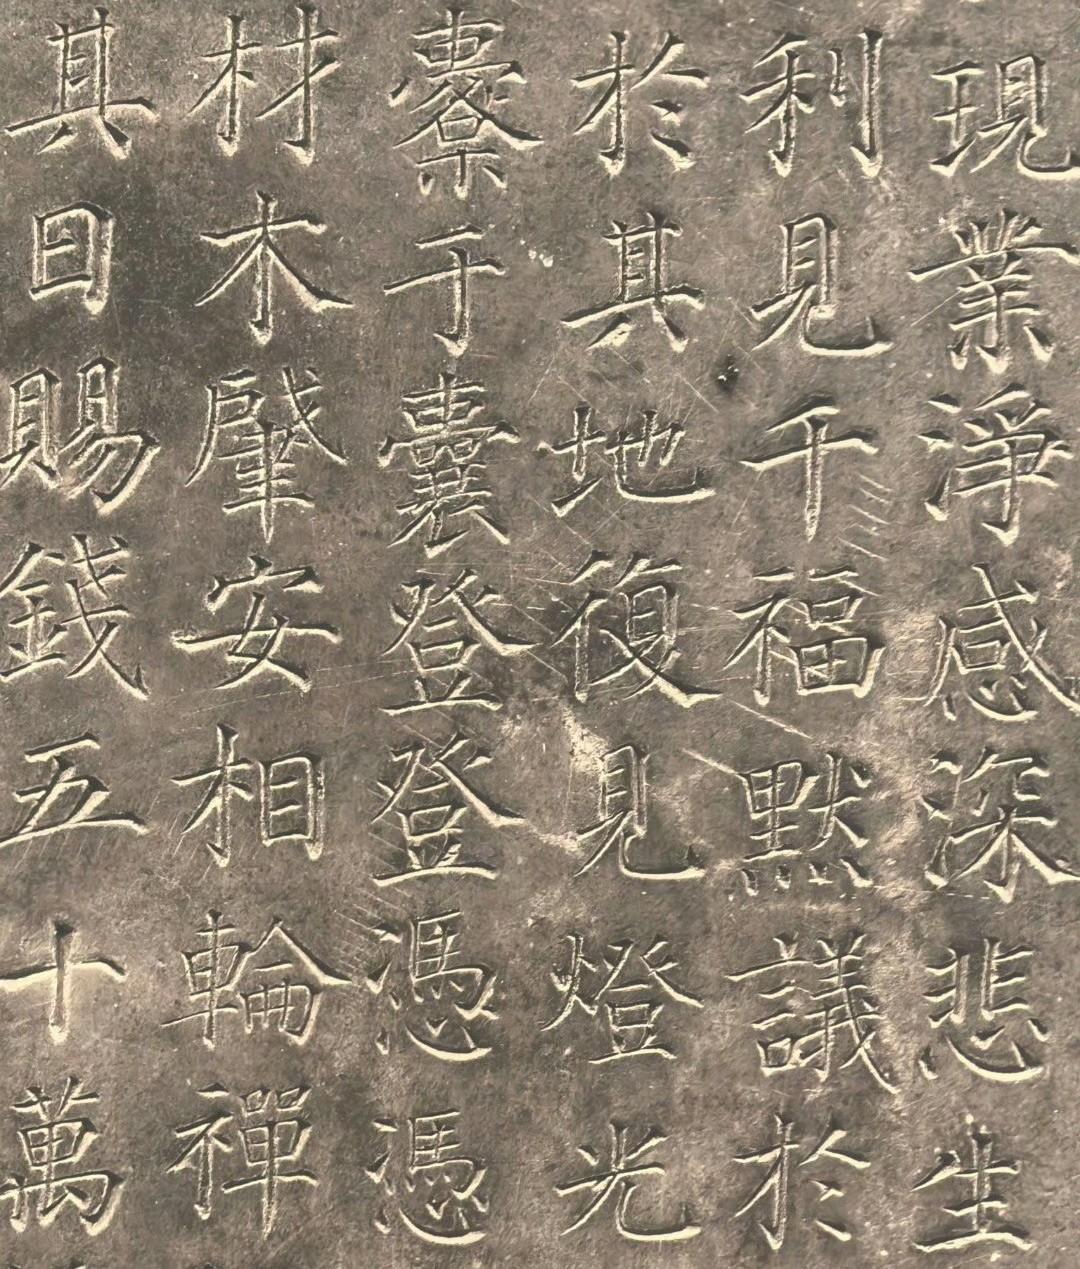 現業淨感深悲生
利見千福默議於
於其地復見燈光
橐于囊登登憑憑
材木肇安相輪禪
其日賜錢五十萬